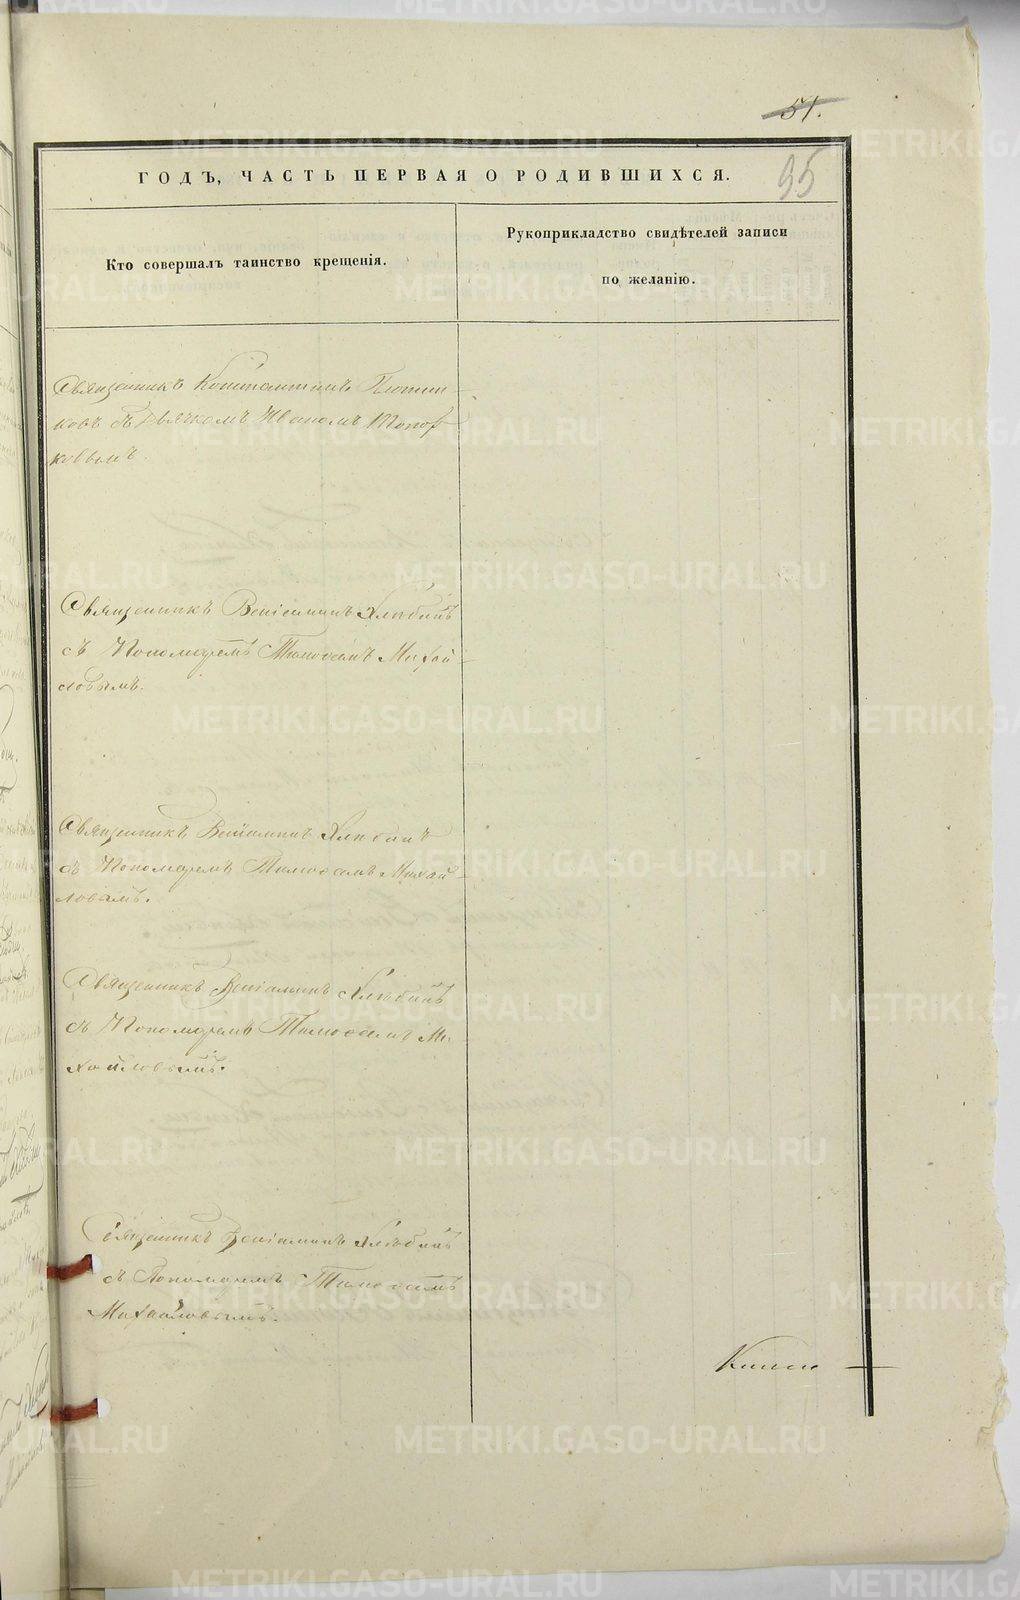 51.
95
ГОДЪ, ЧАСТЬ ПЕРВАЯ О РОДИВШИХСЯ.
Кто совершалъ таинство крещенія.
Рукоприкладство свидѣтелей записи
по желанію.
Священникъ Константинъ
ковъ съ Дьячкомъ Иваномъ Топор
ковымъ.
Священникъ Веніаминъ Хлѣбинъ
съ Пономаремъ Тимоѳеемъ Михай-
ловымъ.
Священникъ Веніаминъ Хлѣбинъ
съ Пономаремъ Тимоѳеемъ Михай-
ловымъ.
Священникъ Веніаминъ Хлѣбинъ
съ Пономаремъ Тимоѳеемъ Ми-
хайловымъ.
Священникъ Веніаминъ Хлѣбинъ
съ Пономаремъ Тимоѳеемъ
Михайловымъ.
METRIKI.GASO-URAL.RU